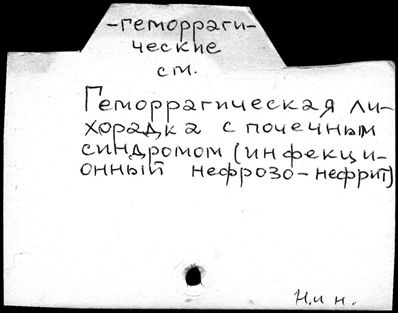 -геморраги-
ческие
см.
Геморрагическая ли-
хорадка с почечным
синдромом (инфекци-
онный нефрозо-нефрит)
Н.и н.